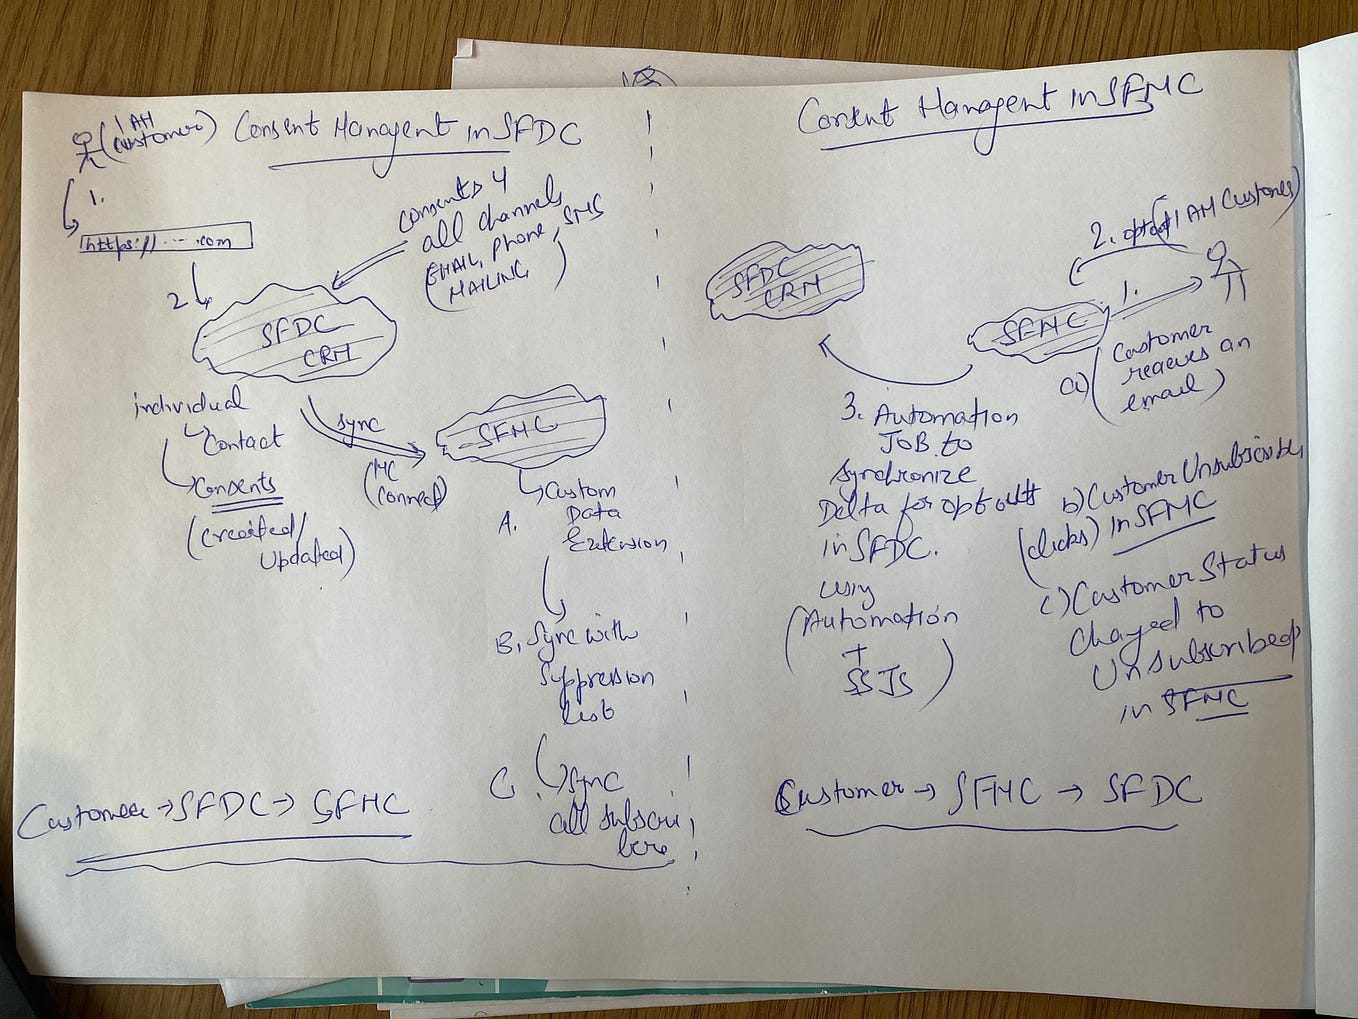 (I AM
customer)
Consent Managent in SFDC
1.
https:// ... .com
2
consents 4
all channels
(EMAIL, phone, SMS
MAILING)
SFDC
CRM
individual
Contact
Consents
(created/
Updated)
sync
(MC
Connect)
SFMC
A. Custom
Data
Extension
B. Sync with
Suppression
list
C. Sync
all subscri
bers
Customer → SFDC → SFMC
Consent Managent in SFMC
2. optout (I AM Customer)
SFDC
CRM
SFMC
1.
a) (Customer
receives an
email)
3. Automation
JOB to
synchronize
Delta for opt outs
in SFDC.
using
(Automation
+
SSJS)
b) Customer Unsubscribes
(clicks) in SFMC
c) Customer Status
changed to
Unsubscribed
in SFMC
Customer → SFMC → SFDC